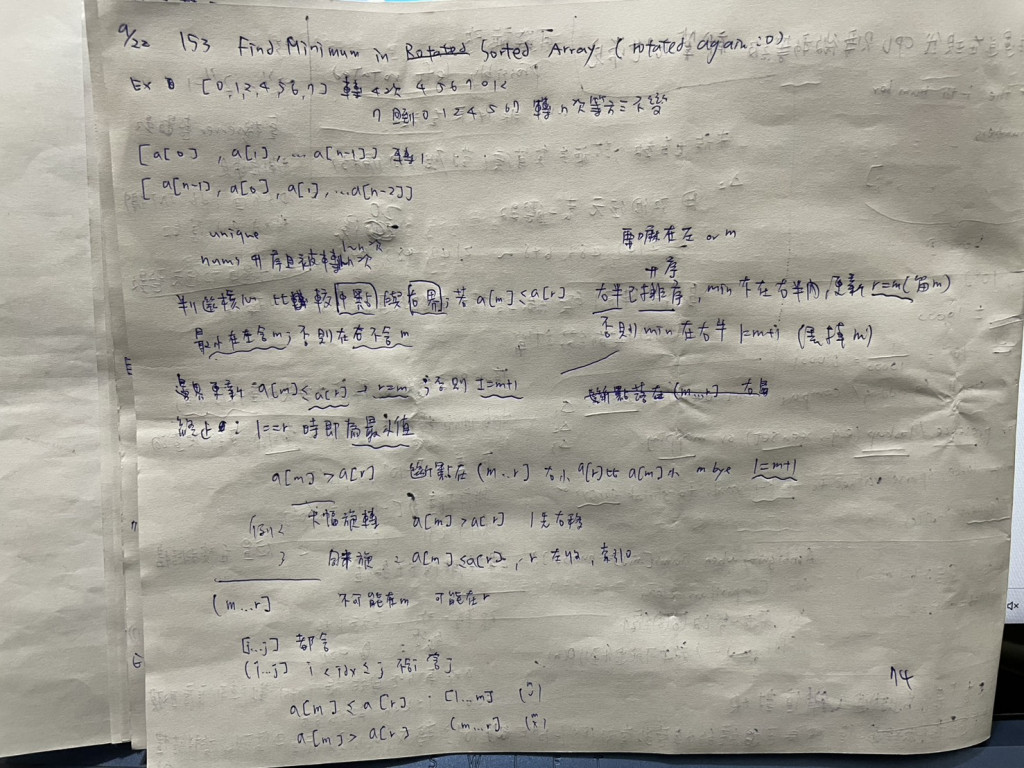 9/22 153 Find Minimum in Rotated Sorted Array (rotated again :0)
EX [0,1,2,4,5,6,7] 轉 4次 4 5 6 7 0 1 2
7 回到 0 1 2 4 5 6 7 轉 n 次等於不變
[a[0], a[1], ... a[n-1]] 轉1
[a[n-1], a[0], a[1], ...a[n-2]]
unique
nums 升序且被轉 1~n 次
要嘛在左 or m
判斷核心 比較中點與右界; 若 a[m]≤a[r]
升序
右半已排序; min 不在右半內, 更新 r=m (留m)
最小在左含m; 否則在右不含m
否則 min 在右半 l=m+1 (丟掉 m)
邊界更新 a[m]≤a[r] → r=m; 否則 l=m+1
斷點落在 (m...r] 右
終止: l==r 時即為最小值
a[m] > a[r] 斷點在 (m...r] a[r]比a[m]小 m bye l=m+1
例2 大幅旋轉 a[m]>a[r] l先右移
3 向來旋 : a[m]≤a[r], r 左收, 索引0
(m...r] 不可能在m 可能在r
[i...j] 都含
(i...j] i < idx ≤ j 不含i 含j
a[m] ≤ a[r] [l...m]
a[m] > a[r] (m...r]
74